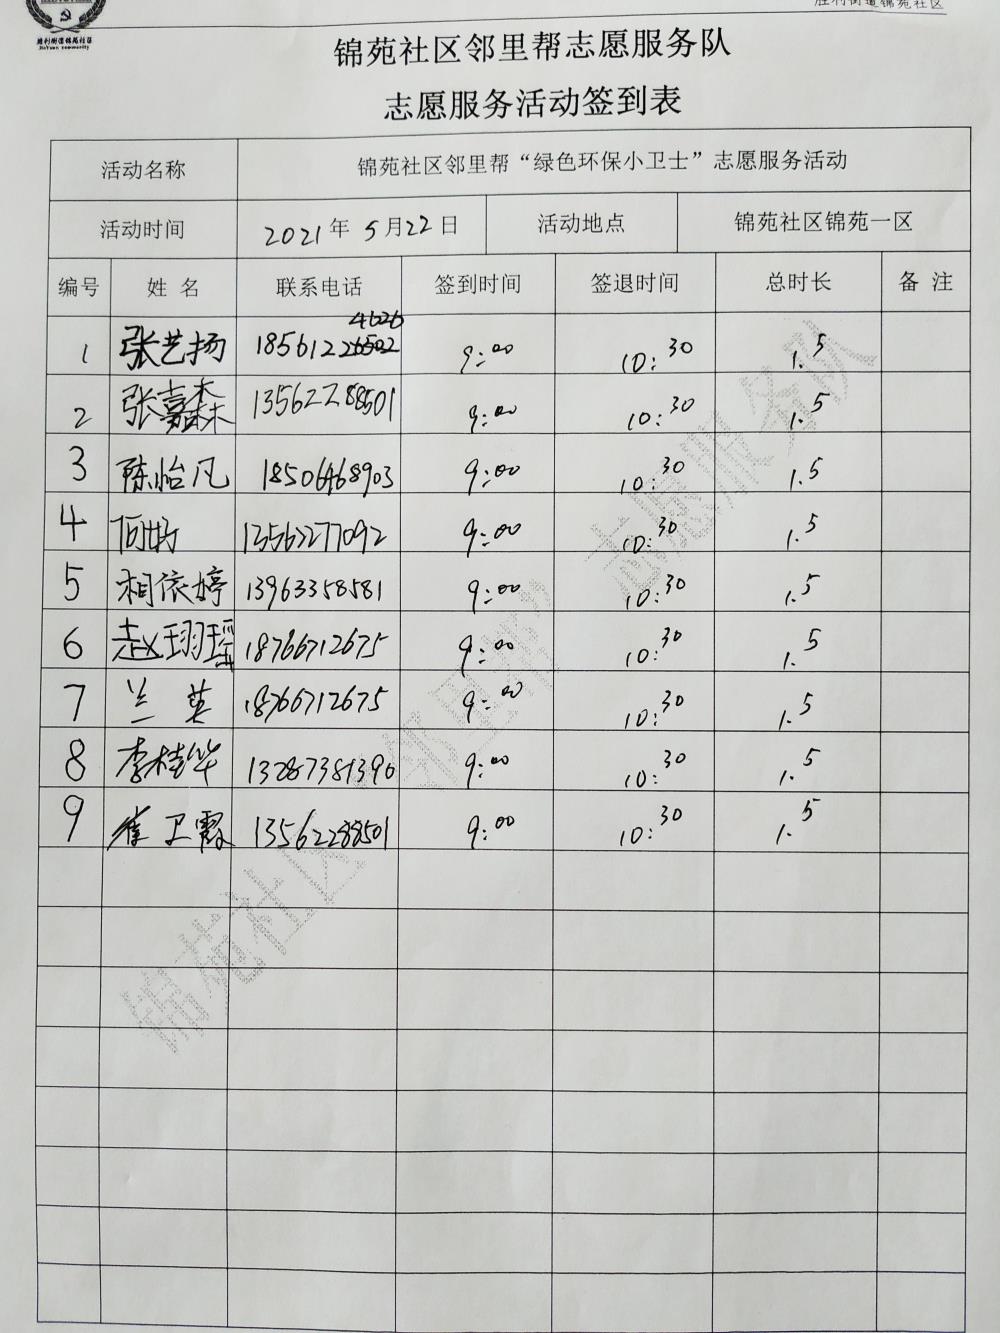 胜利街道锦苑社区
胜利街道锦苑社区
JinYuan community
锦苑社区邻里帮志愿服务队
志愿服务活动签到表
活动名称 锦苑社区邻里帮“绿色环保小卫士”志愿服务活动
活动时间 2021年5月22日 活动地点 锦苑社区锦苑一区
编号 姓名 联系电话 签到时间 签退时间 总时长 备注
4626
1 张艺扬 1856122 9:00 10:30 1.5
2 张嘉森 13562288501 9:00 10:30 1.5
3 陈怡凡 18506468903 9:00 10:30 1.5
4 何好 13562277092 9:00 10:30 1.5
5 相依婷 13963358581 9:00 10:30 1.5
6 赵珝瑶 18766712675 9:00 10:30 1.5
7 兰英 18766712675 9:00 10:30 1.5
8 李桂华 13287381390 9:00 10:30 1.5
9 崔卫霞 13562288501 9:00 10:30 1.5
锦苑社区“邻里帮”志愿服务队